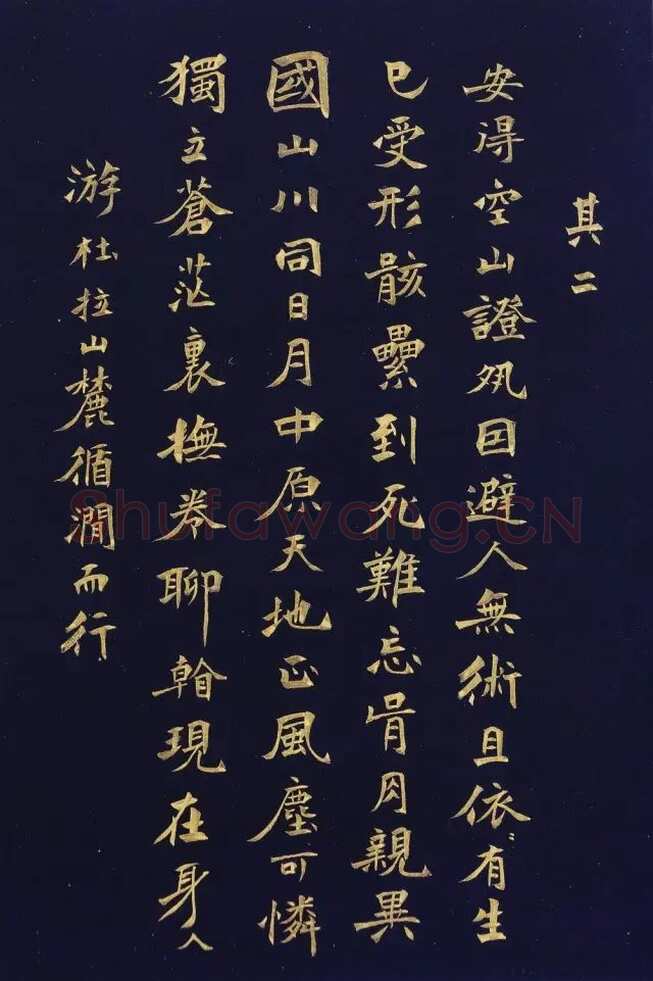 其二
安得空山證夙因避人無術且依有生
已受形骸纍到死難忘骨肉親異
國山川同日月中原天地正風塵可憐
獨立蒼茫裏撫卷聊現在身人
游杜拉山麓循澗而行
Shufawang.CN